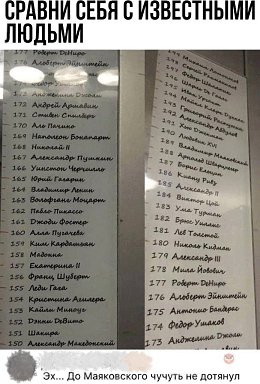 СРАВНИ СЕБЯ С ИЗВЕСТНЫМИ
ЛЮДЬМИ
177 Роберт ДеНиро
176 Альберт Эйнштейн
173 Анджелина Джоли
172 Андрей Аршавин
171 Стивен Спилберг
170 Аль Пачино
169 Наполеон Бонапарт
168 Николай II
167 Александр Пушкин
166 Уинстон Черчилль
165 Юрий Гагарин
164 Владимир Ленин
163 Вольфганг Моцарт
162 Пабло Пикассо
161 Джоди Фостер
160 Алла Пугачева
159 Ким Кардашьян
158 Мадонна
157 Екатерина II
156 Франц Шуберт
155 Леди Гага
154 Кристина Агилера
153 Кайли Миноуг
152 Дэнни ДеВито
151 Шакира
150 Александр Македонский
190 Людовик XVI
189 Владимир Маяковский
188 Арнольд Шварценеггер
187 Борис Ельцин
186 Киану Ривз
185 Александр II
184 Виктор Цой
183 Ума Турман
182 Брюс Уиллис
181 Лев Толстой
180 Николь Кидман
179 Александр III
178 Мила Йовович
177 Роберт ДеНиро
176 Альберт Эйнштейн
175 Антонио Бандерас
174 Федор Ушаков
173 Анджелина Джоли
Эх... До Маяковского чучуть не дотянул